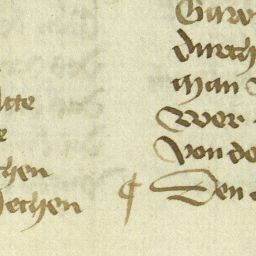 tte
e
chen
echen
Gar
durch
man
wer
von de
¶ Den